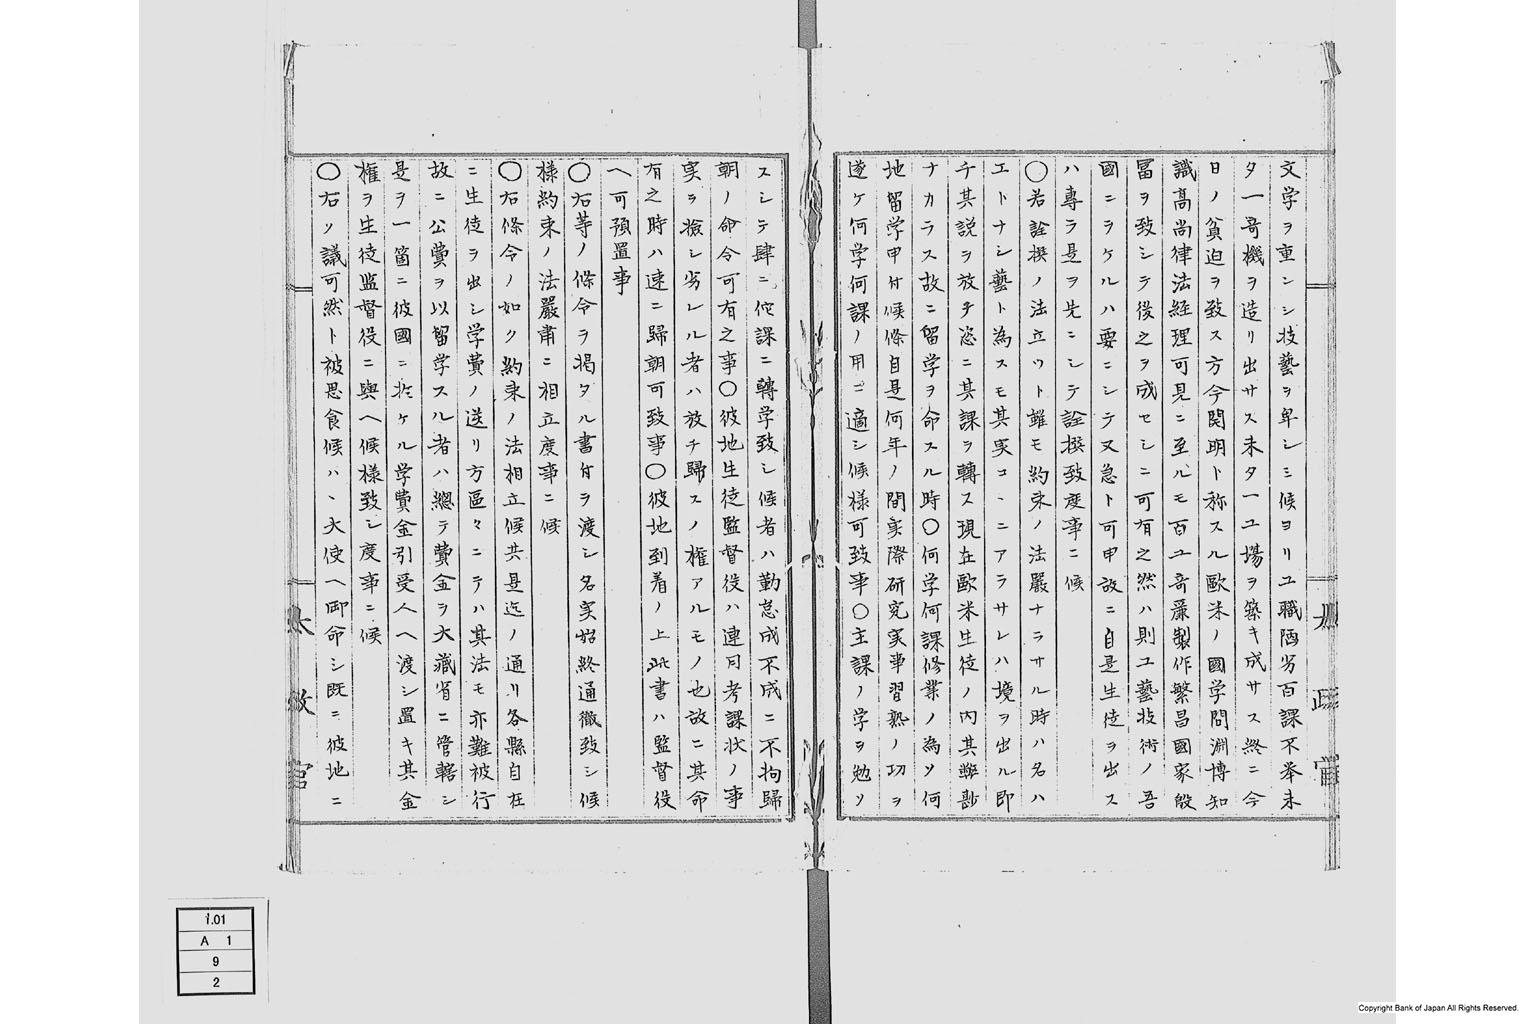 文学ヲ重ンシ技藝ヲ卑シミ候ヨリエ職陋劣百課不挙未
タ一奇機ヲ造リ出サス未タ一エ場ヲ築キ成サス終ニ今
日ノ貧迫ヲ致ス方今開明ト称スル歐米ノ國学問渊博知
識高尚律法経理可見ニ至ルモ百エ奇麗製作繁昌國家殷
冨ヲ致シテ後之ヲ成セシニ可有之然ハ則エ藝技術ノ吾
國ニヲケルハ要ニシテ又急ト可申故ニ自是生徒ヲ出ス
ハ專ラ是ヲ先ニシテ詮撰致度事ニ候
〇若詮撰ノ法立ツト雖モ約束ノ法嚴ナラサル時ハ名ハ
エトナシ藝ト為スモ其実コヽニアラサレハ境ヲ出ル即
チ其説ヲ放チ恣ニ其課ヲ轉ス現在歐米生徒ノ内其弊尠
ナカラス故ニ留学ヲ命スル時〇何学何課修業ノ為ソ何
地留学申付候條自是何年ノ間実際研究実事習熟ノ功ヲ
遂ケ何学何課ノ用ニ適シ候様可致事〇主課ノ学ヲ勉ソ
スシテ肆ニ佗課ニ轉学致シ候者ハ勤怠成不成ニ不拘歸
朝ノ命令可有之事〇彼地生徒監督役ハ連月考課状ノ事
実ヲ檢シ劣レル者ハ放チ歸スノ權アルモノ也故ニ其命
有之時ハ速ニ歸朝可致事〇彼地到着ノ上此書ハ監督役
ヘ可預置事
〇右等ノ條令ヲ掲タル書付ヲ渡シ名実始終通徹致シ候
様約束ノ法嚴肅ニ相立度事ニ候
〇右條令ノ如ク約束ノ法相立候共是迄ノ通リ各縣自在
ニ生徒ヲ出シ学費ノ送リ方區々ニテハ其法モ亦難被行
故ニ公費ヲ以留学スル者ハ總テ費金ヲ大藏省ニ管轄シ
是ヲ一箇ニ彼國ニ於ケル学費金引受人ヘ渡シ置キ其金
權ヲ生徒監督役ニ與ヘ候様致シ度事ニ候
〇右ノ議可然ト被思食候ハヽ大使ヘ御命シ既ニ彼地ニ
太政官
太政官
1.01
A 1
9
2
Copyright Bank of Japan All Rights Reserved.